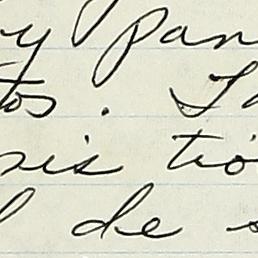 y pan
tos. Ta
sis tio
l de s